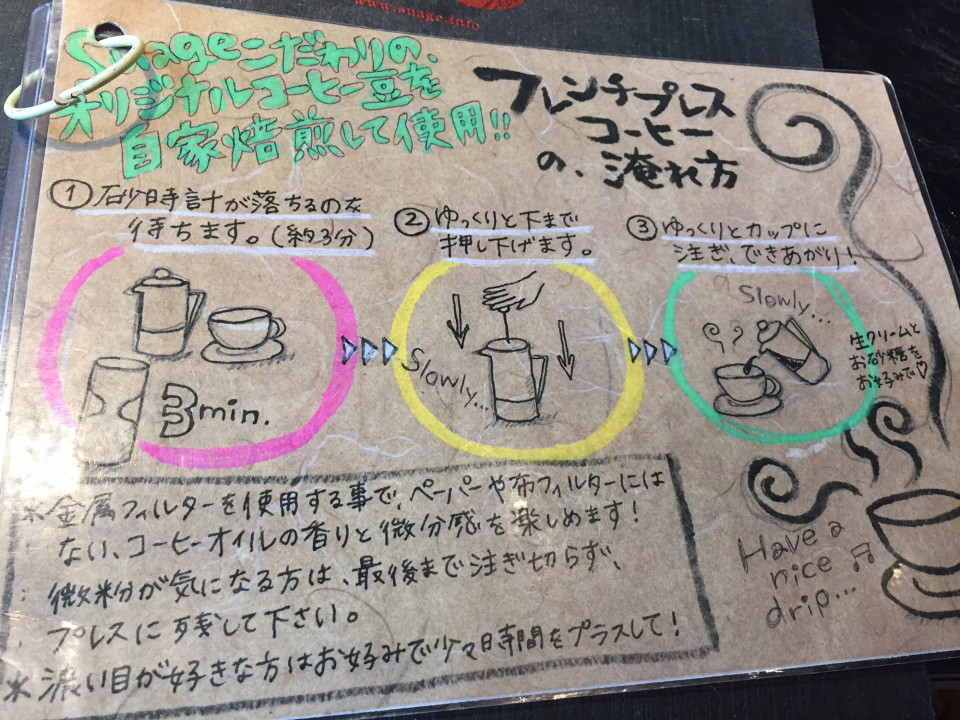 www.suage.info
Suageこだわりの、
オリジナルコーヒー豆を
自家焙煎して使用!!
フレンチプレス
コーヒー
の、淹れ方
① 砂時計が落ちるのを
待ちます。(約3分)
② ゆっくりと下まで
押し下げます。
③ ゆっくりとカップに
注ぎ、できあがり!
3min.
Slowly...
Slowly...
生クリームと
お砂糖を
お好みで♡
*金属フィルターを使用する事で、ペーパーや布フィルターには
ない、コーヒーオイルの香りと微分感を楽しめます!
微粉が気になる方は、最後まで注ぎ切らず、
プレスに残して下さい。
*濃い目が好きな方はお好みで少々時間をプラスして!
Have a
nice ♫
drip...